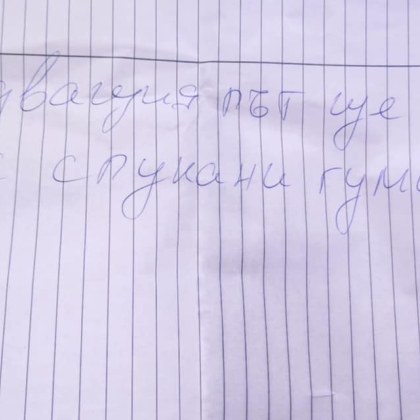 дващия път ще
спукани гум